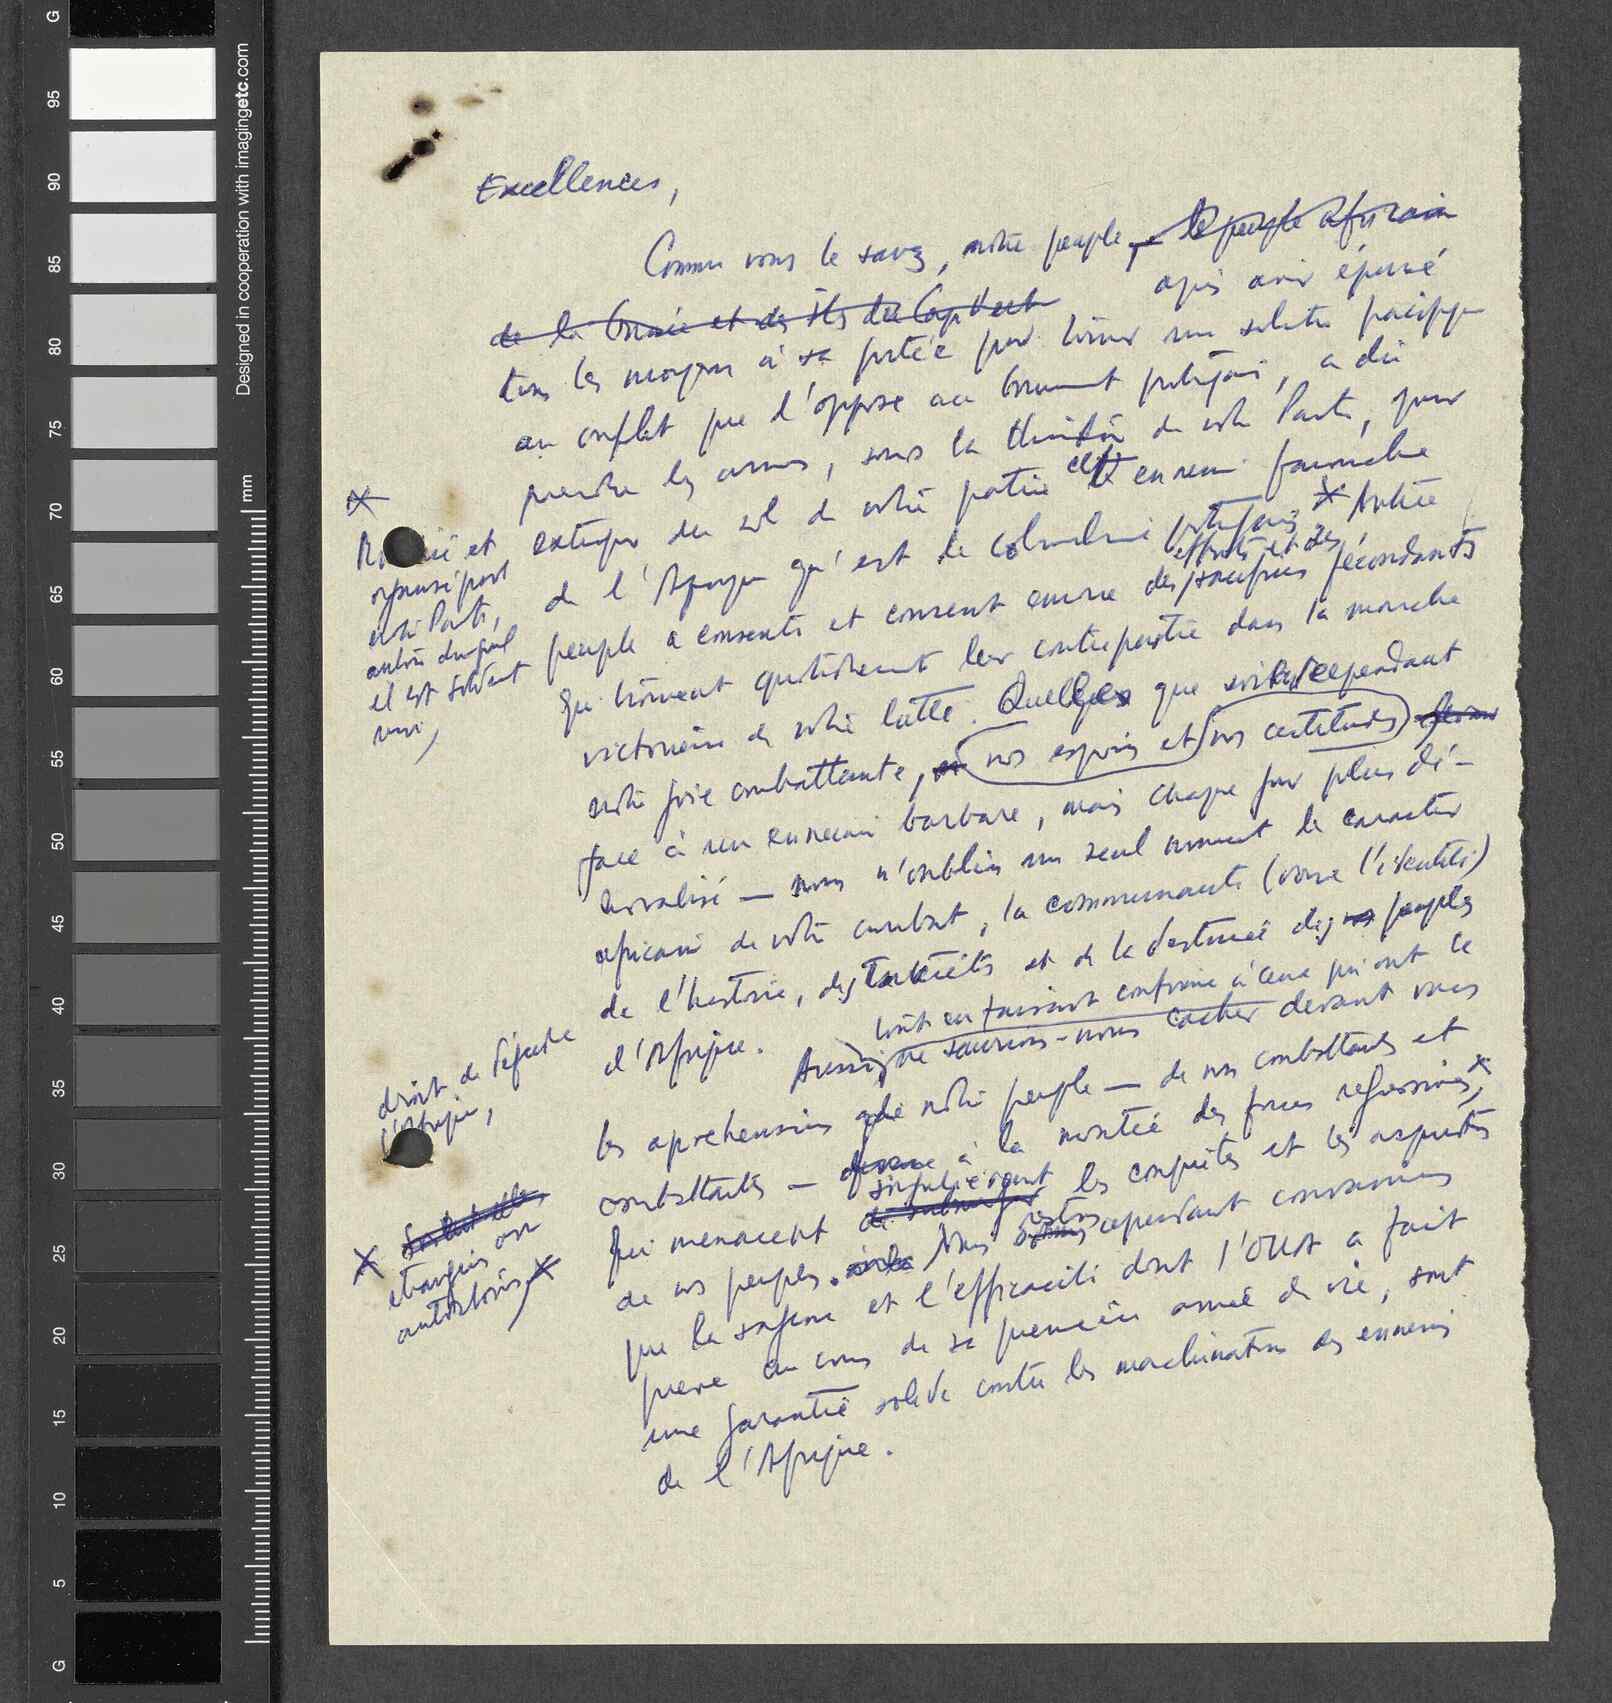 Excellences,
Comme vous le savez, notre peuple, le peuple africain
de la Guinée et des îles du Cap Vert après avoir épuisé
tous les moyens à sa portée pour trouver une solution pacifique
au conflit que l'oppose au Gouvernement portugais, a dû
prendre les armes, sous la direction de notre Parti, pour
extirper du sol de notre patrie cet ennemi farouche
de l'Afrique qu'est le colonialisme portugais. X Notre
efforts et des
peuple a consenti et consent encore des sacrifices fécondants
qui trouvent quotidiennement leur contrepartie dans la marche
victorieuse de notre lutte. Quelles que soient cependant
notre joie combattante, nos espoirs et nos certitudes
face à un ennemi barbare, mais chaque jour plus dé-
moralisé — nous n'oublions un seul moment le caractère
africain de notre combat, la communauté (voire l'identité)
de l'histoire, des intérêts et de la destinée des peuples
d'Afrique.
tout en faisant confiance à ceux qui ont le
Aussi, ne saurions-nous cacher devant vous
les aprehensions de notre peuple — de nos combattants et
combattantes — face à la montée des forces regressives X,
singulièrement
qui menacent les conquêtes et les aspirations
restons
de nos peuples. Nous sommes cependant convaincus
que la sagesse et l'efficacité dont l'OUA a fait
preuve au cours de sa première année de vie, sont
une garantie solide contre les machinations des ennemis
de l'Afrique.
X
et
organisé par
notre Parti,
autour duquel
il est solidement
uni,
droit de
l'Afrique,
X
étrangers ou
autochtones X
G
95
90
85
80
75
70
65
60
55
50
45
40
35
30
25
20
15
10
5
G
Designed in cooperation with imagingetc.com
mm